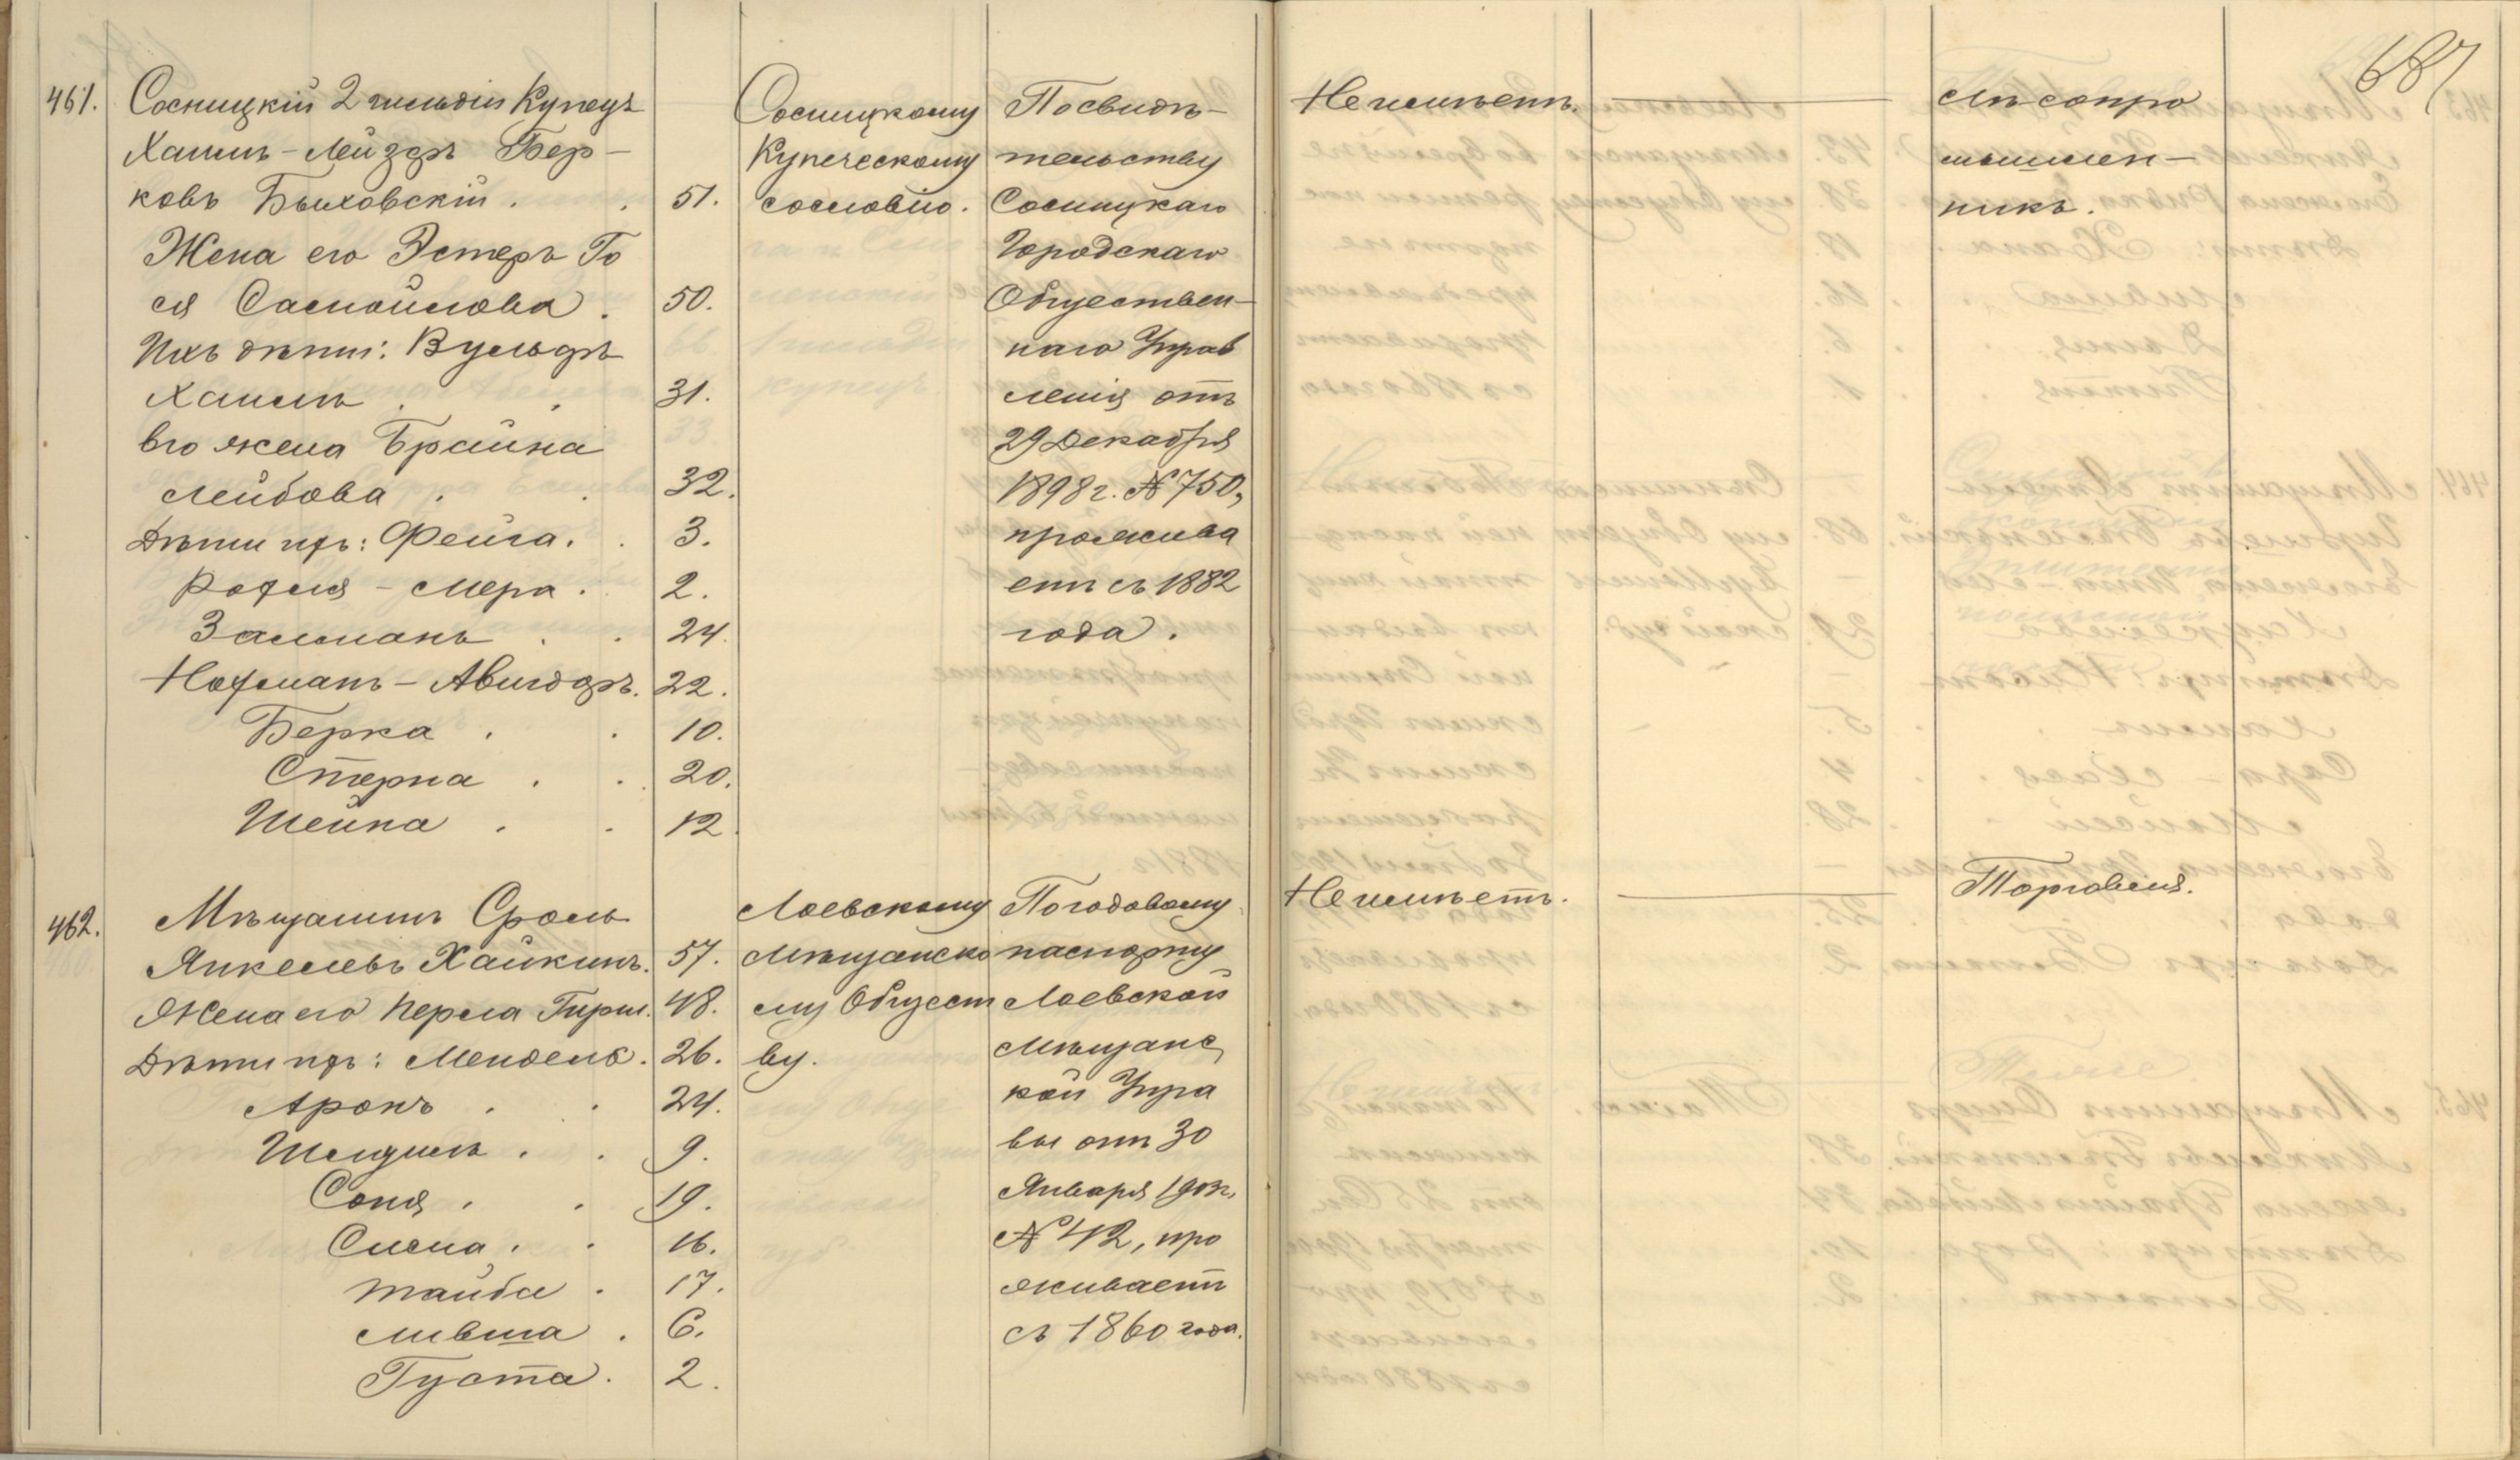 687
461. Сосницкій 2 гильдіи Купецъ
Хаимъ-Лейзеръ Бер-
ковъ Быховскій . . 51.
Жена его Эстеръ Го
ся Самойлова . 50.
Ихъ дѣти: Вульфъ
Хаимъ . . 31.
Его жена Брайна
Лейбова . . 32.
Дѣти ихъ: Фейга . . 3.
Рохля - Мера . 2.
Залманъ . . 24.
Нохманъ - Авигдоръ. 22.
Берка . . 10.
Стерна . . 20.
Шейна . . 12.
Сосницкому
Купеческому
сословію.
По свидѣ-
тельству
Сосницкаго
Городскаго
Обществен-
наго Управ
ленія отъ
29 Декабря
1898 г. № 750,
прожива
етъ съ 1882
года.
Не имѣетъ.
Лѣсопро
мышлен-
никъ.
462. Мѣщанинъ Сроль
Янкелевъ Хайкинъ. 57.
Жена его Перла Гирш. 48.
Дѣти ихъ: Мендель. 26.
Аронъ . . 24.
. . 9.
Соня . . 19.
Сима . . 16.
Тайба . 17.
Мивша . 6.
Густа . 2.
Лоевскому
Мѣщанско
му Общест
ву.
По годовому
паспорту
Лоевской
Мѣщанс
кой Упра
вы отъ 30
Января 1903г.
№ 42, про
живаетъ
съ 1860 года.
Не имѣетъ.
Торговля.